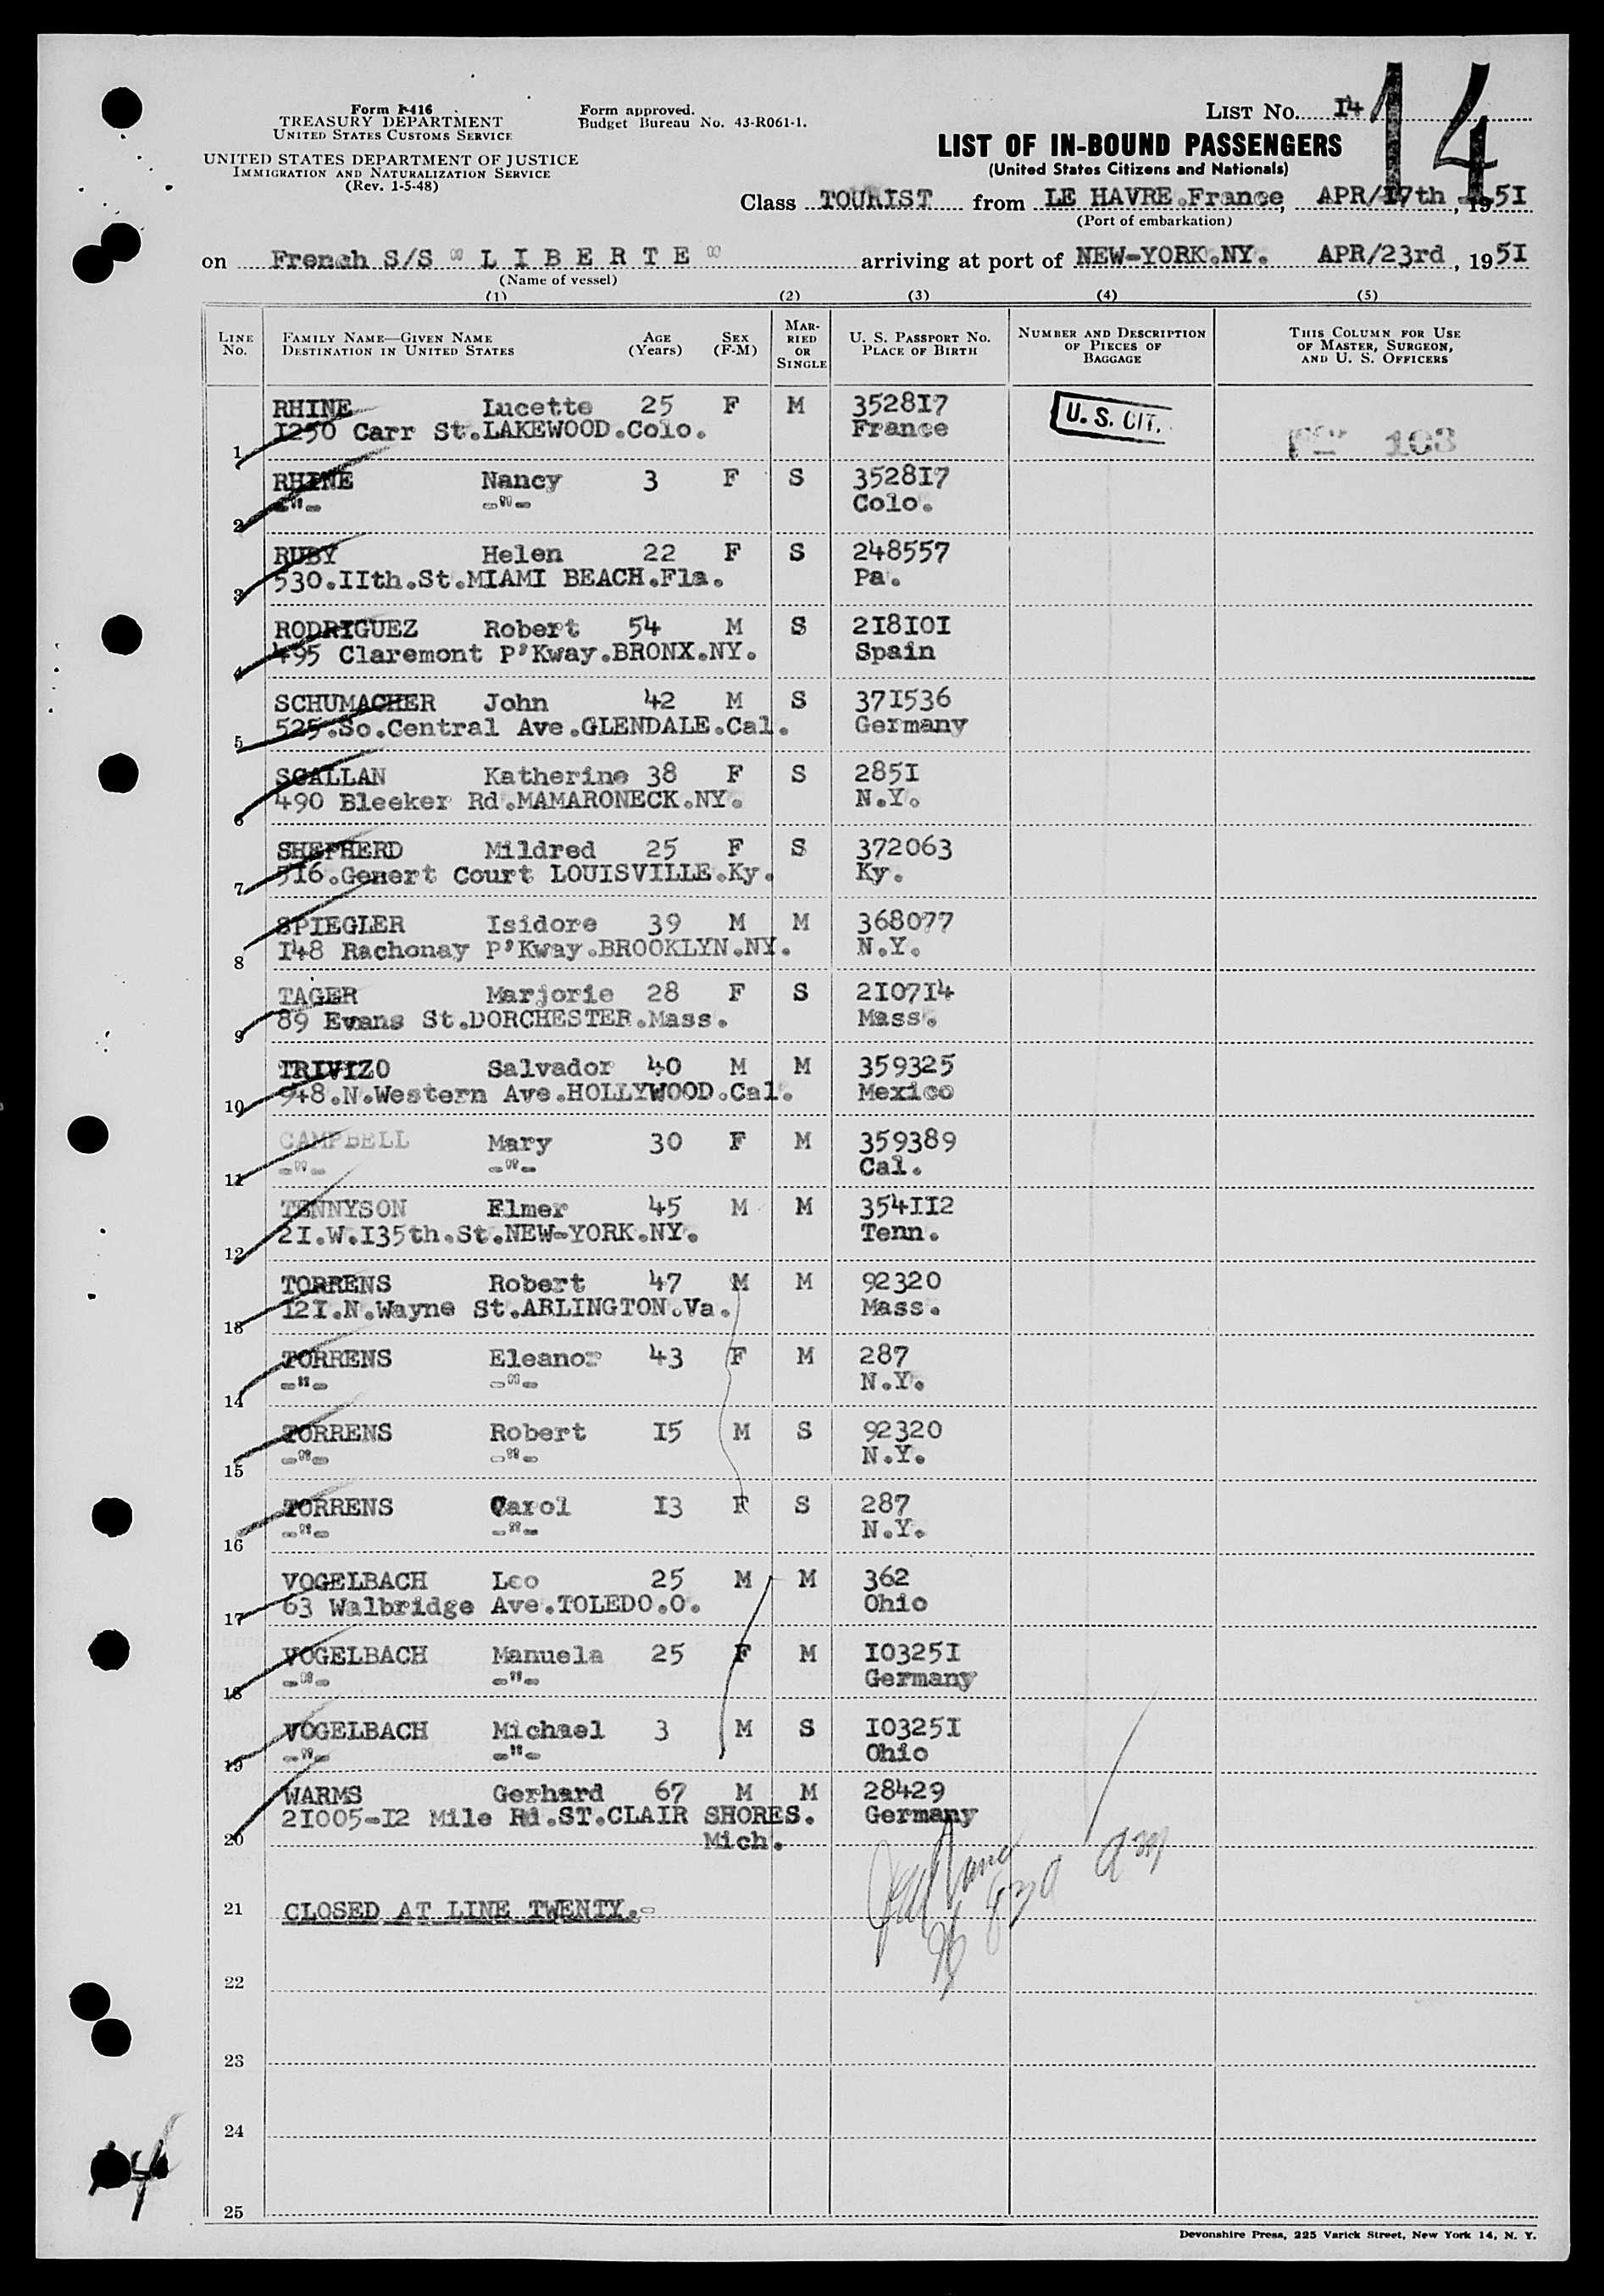 Form I-416
TREASURY DEPARTMENT
UNITED STATES CUSTOMS SERVICE
UNITED STATES DEPARTMENT OF JUSTICE
IMMIGRATION AND NATURALIZATION SERVICE
(Rev. 1-5-48)
Form approved.
Budget Bureau No. 43-R061-1.
LIST No. I4
14
LIST OF IN-BOUND PASSENGERS
(United States Citizens and Nationals)
Class TOURIST from LE HAVRE.France, APR/I7th, 1951
(Port of embarkation)
on French S/S " L I B E R T E " arriving at port of NEW-YORK.NY. APR/23rd, 195I
(Name of vessel)
(1) (2) (3) (4) (5)
LINE No. FAMILY NAME—GIVEN NAME DESTINATION IN UNITED STATES AGE (Years) SEX (F-M) MARRIED OR SINGLE U. S. PASSPORT No. PLACE OF BIRTH NUMBER AND DESCRIPTION OF PIECES OF BAGGAGE THIS COLUMN FOR USE OF MASTER, SURGEON, AND U. S. OFFICERS
RHINE Lucette 25 F M 3528I7 U. S. CIT.
1 I250 Carr St.LAKEWOOD.Colo. France 103
RHINE Nancy 3 F S 3528I7
2 -"- -"- Colo.
RUBY Helen 22 F S 248557
3 530.IIth.St.MIAMI BEACH.Fla. Pa.
RODRIGUEZ Robert 54 M S 2I8I0I
4 495 Claremont P'Kway.BRONX.NY. Spain
SCHUMACHER John 42 M S 37I536
5 525.So.Central Ave.GLENDALE.Cal. Germany
SCALLAN Katherine 38 F S 285I
6 490 Bleeker Rd.MAMARONECK.NY. N.Y.
SHEPHERD Mildred 25 F S 372063
7 5I6.Genert Court LOUISVILLE.Ky. Ky.
SPIEGLER Isidore 39 M M 368077
8 I48 Rachonay P'Kway.BROOKLYN.NY. N.Y.
TAGER Marjorie 28 F S 2I07I4
9 89 Evans St.DORCHESTER.Mass. Mass.
TRIVIZO Salvador 40 M M 359325
10 948.N.Western Ave.HOLLYWOOD.Cal. Mexico
CAMPBELL Mary 30 F M 359389
11 -"- -"- Cal.
TENNYSON Elmer 45 M M 354II2
12 2I.W.I35th.St.NEW-YORK.NY. Tenn.
TORRENS Robert 47 M M 92320
13 I2I.N.Wayne St.ARLINGTON.Va. Mass.
TORRENS Eleanor 43 F M 287
14 -"- -"- N.Y.
TORRENS Robert I5 M S 92320
15 -"- -"- N.Y.
TORRENS Carol I3 F S 287
16 -"- -"- N.Y.
VOGELBACH Leo 25 M M 362
17 63 Walbridge Ave.TOLEDO.O. Ohio
VOGELBACH Manuela 25 F M I0325I
18 -"- -"- Germany
VOGELBACH Michael 3 M S I0325I
19 -"- -"- Ohio
WARMS Gerhard 67 M M 28429
2I005-I2 Mile Rd.ST.CLAIR SHORES. Germany
20 Mich.
21 CLOSED AT LINE TWENTY.-
22
23
24
25
Devonshire Press, 225 Varick Street, New York 14, N. Y.